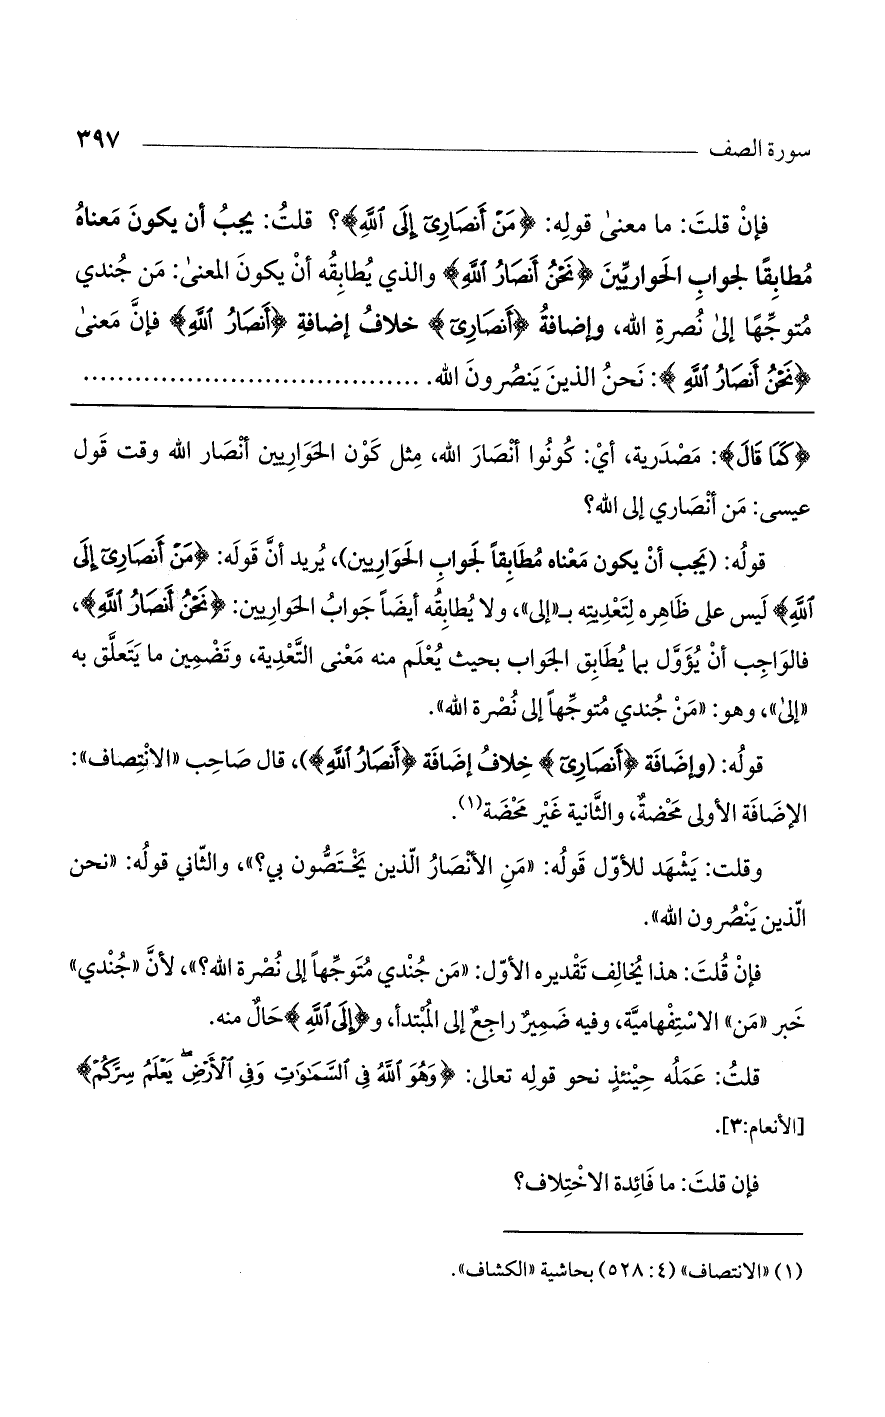 سورة الصف ٣٩٧
فإنْ قلتَ: ما معنىٰ قولِه: ﴿مَنْ أَنصَارِىٓ إِلَى ٱللَّهِ﴾؟ قلتُ: يجبُ أن يكونَ مَعناهُ
مُطابِقًا لجوابِ الحَواريِّينَ ﴿نَحْنُ أَنصَارُ ٱللَّهِ﴾ والذي يُطابِقُه أنْ يكونَ المعنىٰ: مَن جُندي
مُتوجِّهًا إلىٰ نُصرةِ الله، وإضافةُ ﴿أَنصَارِىٓ﴾ خلافُ إضافةِ ﴿أَنصَارُ ٱللَّهِ﴾ فإنَّ مَعنىٰ
﴿نَحْنُ أَنصَارُ ٱللَّهِ﴾: نَحنُ الذينَ يَنصُرونَ الله. .......................................
﴿كَمَا قَالَ﴾: مَصْدَرية، أيْ: كُونُوا أنْصَارَ الله، مِثل كَوْن الحَوَارِيين أنْصَار الله وقت قَول
عيسى: مَن أنْصَاري إلى الله؟
قولُه: (يَجب أنْ يكون مَعْناه مُطَابِقاً لجوابِ الحَوَاريين)، يُريد أنَّ قَولَه: ﴿مَنْ أَنصَارِىٓ إِلَى
ٱللَّهِ﴾ لَيس على ظَاهِره لِتَعْدِيَته بـ«إلى»، ولا يُطابقُه أيضَاً جَوابُ الحَوارِيين: ﴿نَحْنُ أَنصَارُ ٱللَّهِ﴾،
فالوَاجِب أنْ يُؤَوَّل بما يُطَابِق الجَواب بحيث يُعْلَم منه مَعْنى التَّعْدِية، وتَضْمِين ما يَتَعلَّق به
«إلىٰ»، وهو: «مَنْ جُندي مُتوجِّهاً إلى نُصْرة الله».
قولُه: (وإضَافَة ﴿أَنصَارِىٓ﴾ خِلافُ إضَافَة ﴿أَنصَارُ ٱللَّهِ﴾)، قال صَاحِب «الانْتِصاف»:
الإضَافَة الأولى مَحْضةٌ، والثَّانية غَيْر مَحْضَة(١).
وقلت: يَشْهَد للأوّل قَولُه: «مَنِ الأنْصَارُ الّذين يَخْتَصُّون بي؟»، والثّاني قولُه: «نحن
الّذين يَنْصُرون الله».
فإنْ قُلتَ: هذا يُخالِف تَقْديره الأوّل: «مَن جُنْدي مُتَوجِّهاً إلى نُصْرة الله؟»، لأنَّ «جُنْدي»
خَبر «مَن» الاسْتِفْهاميَّة، وفيه ضَميرٌ راجِعٌ إلى المُبْتدأ، و﴿إِلَى ٱللَّهِ﴾ حَالٌ منه.
قلتُ: عَمَلُه حِيْنئذٍ نحو قولِه تعالى: ﴿وَهُوَ ٱللَّهُ فِى ٱلسَّمَٰوَٰتِ وَفِى ٱلْأَرْضِ ۖ يَعْلَمُ سِرَّكُمْ﴾
[الأنعام:٣].
فإن قلتَ: ما فَائِدة الاخْتِلاف؟
(١) «الانتصاف» (٤: ٥٢٨) بحاشية «الكشاف».